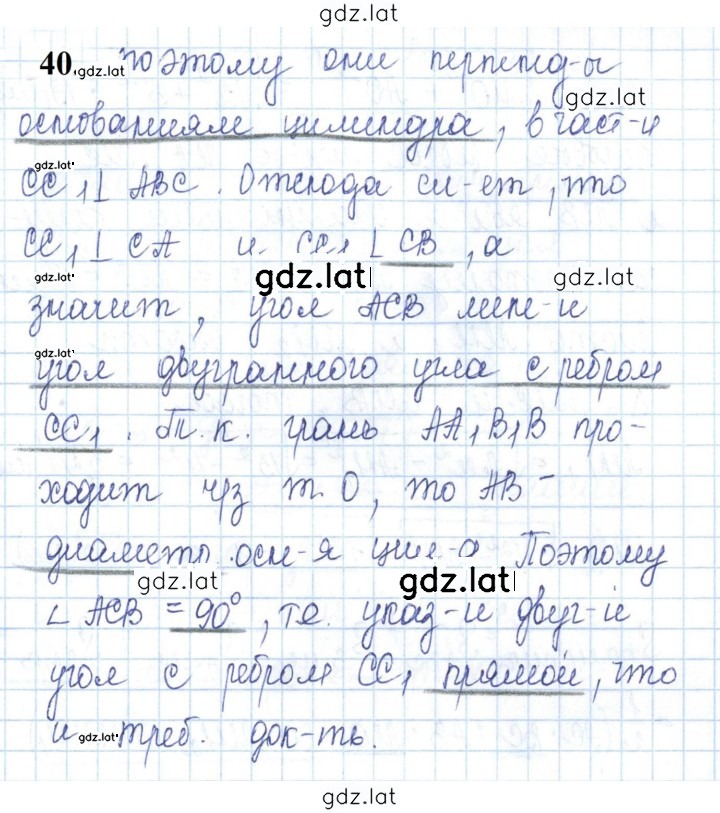 gdz.lat
40. gdz.lat поэтому они перпенд-ы
gdz.lat
основаниям цилиндра, в част-и
gdz.lat
CC₁⊥ ABC. Отсюда сл-ет, что
CC₁⊥ CA и CC₁ ⊥ CB, а
gdz.lat gdz.lat gdz.lat
значит, угол ACB лине-и
gdz.lat
угол двугранного угла с ребром
CC₁. Т.к. грань AA₁B₁B про-
ходит чрз т. O, то AB -
диаметр осн-я цил-а Поэтому
gdz.lat gdz.lat
∠ ACB = 90°, т.е. указ-й двуг-й
угол с ребром CC₁ прямой, что
и gdz.lat треб. док-ть.
gdz.lat